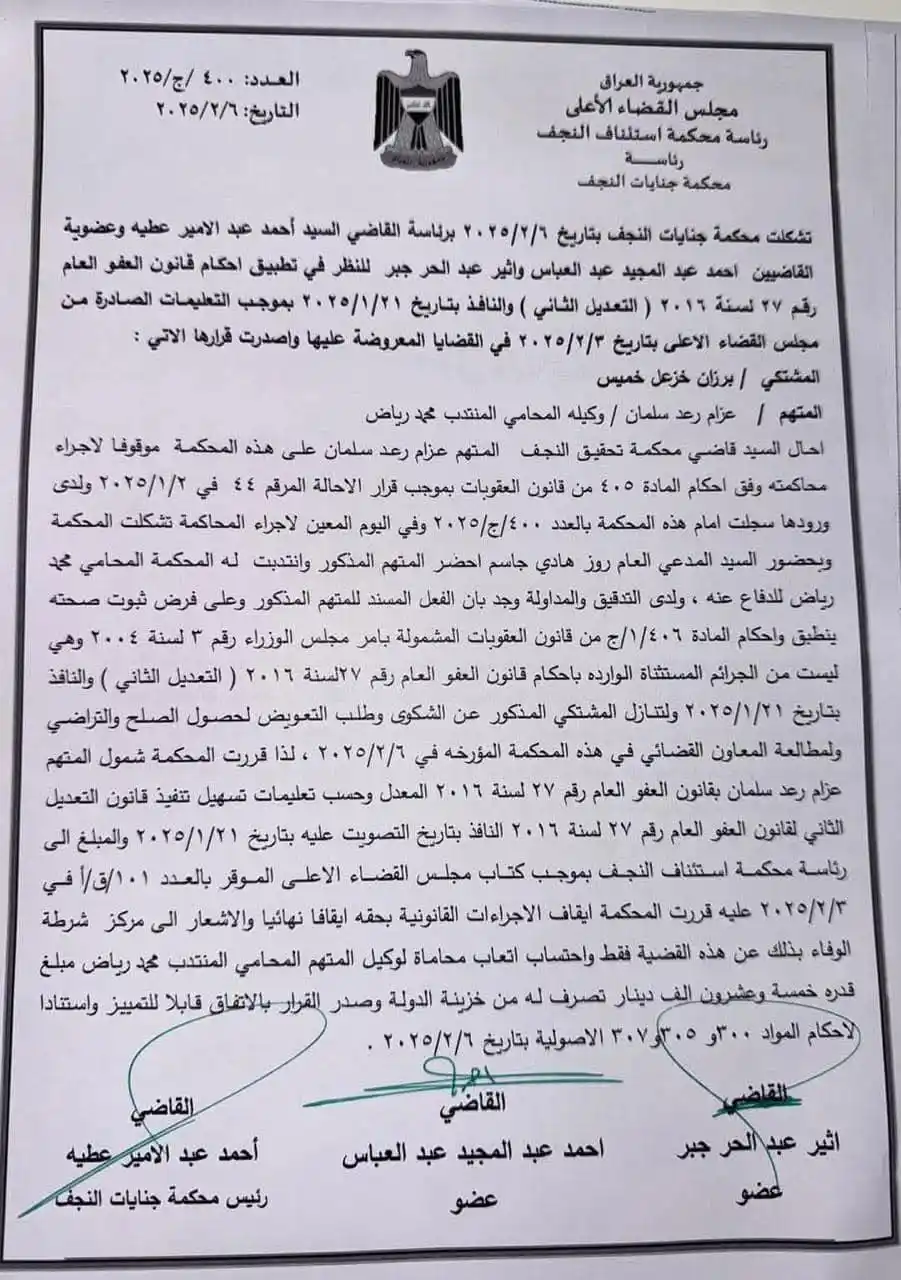 جمهورية العراق
مجلس القضاء الأعلى
رئاسة محكمة استئناف النجف
رئاســـة
محكمة جنايات النجف
العـدد: ٤٠٠ /ج/٢٠٢٥
التاريخ: ٢٠٢٥/٢/٦
تشكلت محكمة جنايات النجف بتاريخ ٢٠٢٥/٢/٦ برئاسة القاضي السيد أحمد عبد الامير عطيه وعضوية
القاضيين احمد عبد المجيد عبد العباس واثير عبد الحر جبر للنظر في تطبيق احكام قانون العفو العام
رقم ٢٧ لسنة ٢٠١٦ ( التعديل الثاني ) والنافذ بتاريخ ٢٠٢٥/١/٢١ بموجب التعليمات الصادرة من
مجلس القضاء الاعلى بتاريخ ٢٠٢٥/٢/٣ في القضايا المعروضة عليها واصدرت قرارها الاتي :
المشتكي / برزان خزعل خميس
المتهم / عزام رعد سلمان / وكيله المحامي المنتدب محمد رياض
احال السيد قاضي محكمة تحقيق النجف المتهم عزام رعد سلمان على هذه المحكمة موقوفا لاجراء
محاكمته وفق احكام المادة ٤٠٥ من قانون العقوبات بموجب قرار الاحالة المرقم ٤٤ في ٢٠٢٥/١/٢ ولدى
ورودها سجلت امام هذه المحكمة بالعدد ٤٠٠/ج/٢٠٢٥ وفي اليوم المعين لاجراء المحاكمة تشكلت المحكمة
وبحضور السيد المدعي العام روز هادي جاسم احضر المتهم المذكور وانتدبت له المحكمة المحامي محمد
رياض للدفاع عنه ، ولدى التدقيق والمداولة وجد بان الفعل المسند للمتهم المذكور وعلى فرض ثبوت صحته
ينطبق واحكام المادة ١/٤٠٦/ج من قانون العقوبات المشمولة بامر مجلس الوزراء رقم ٣ لسنة ٢٠٠٤ وهي
ليست من الجرائم المستثناة الوارده باحكام قانون العفو العام رقم ٢٧لسنة ٢٠١٦ ( التعديل الثاني ) والنافذ
بتاريخ ٢٠٢٥/١/٢١ ولتنازل المشتكي المذكور عن الشكوى وطلب التعويض لحصول الصلح والتراضي
ولمطالعة المعاون القضائي في هذه المحكمة المؤرخه في ٢٠٢٥/٢/٦ ، لذا قررت المحكمة شمول المتهم
عزام رعد سلمان بقانون العفو العام رقم ٢٧ لسنة ٢٠١٦ المعدل وحسب تعليمات تسهيل تنفيذ قانون التعديل
الثاني لقانون العفو العام رقم ٢٧ لسنة ٢٠١٦ النافذ بتاريخ التصويت عليه بتاريخ ٢٠٢٥/١/٢١ والمبلغ الى
رئاسة محكمة استئناف النجف بموجب كتاب مجلس القضاء الاعلى الموقر بالعدد ١٠١/ق/أ في
٢٠٢٥/٢/٣ عليه قررت المحكمة ايقاف الاجراءات القانونية بحقه ايقافا نهائيا والاشعار الى مركز شرطة
الوفاء بذلك عن هذه القضية فقط واحتساب اتعاب محاماة لوكيل المتهم المحامي المنتدب محمد رياض مبلغ
قدره خمسة وعشرون الف دينار تصرف له من خزينة الدولة وصدر القرار بالاتفاق قابلا للتمييز واستنادا
لاحكام المواد ٣٠٠و ٣٠٥و٣٠٧ الاصولية بتاريخ ٢٠٢٥/٢/٦ .
القاضي
اثير عبد الحر جبر
عضو
القاضي
احمد عبد المجيد عبد العباس
عضو
القاضي
أحمد عبد الامير عطيه
رئيس محكمة جنايات النجف